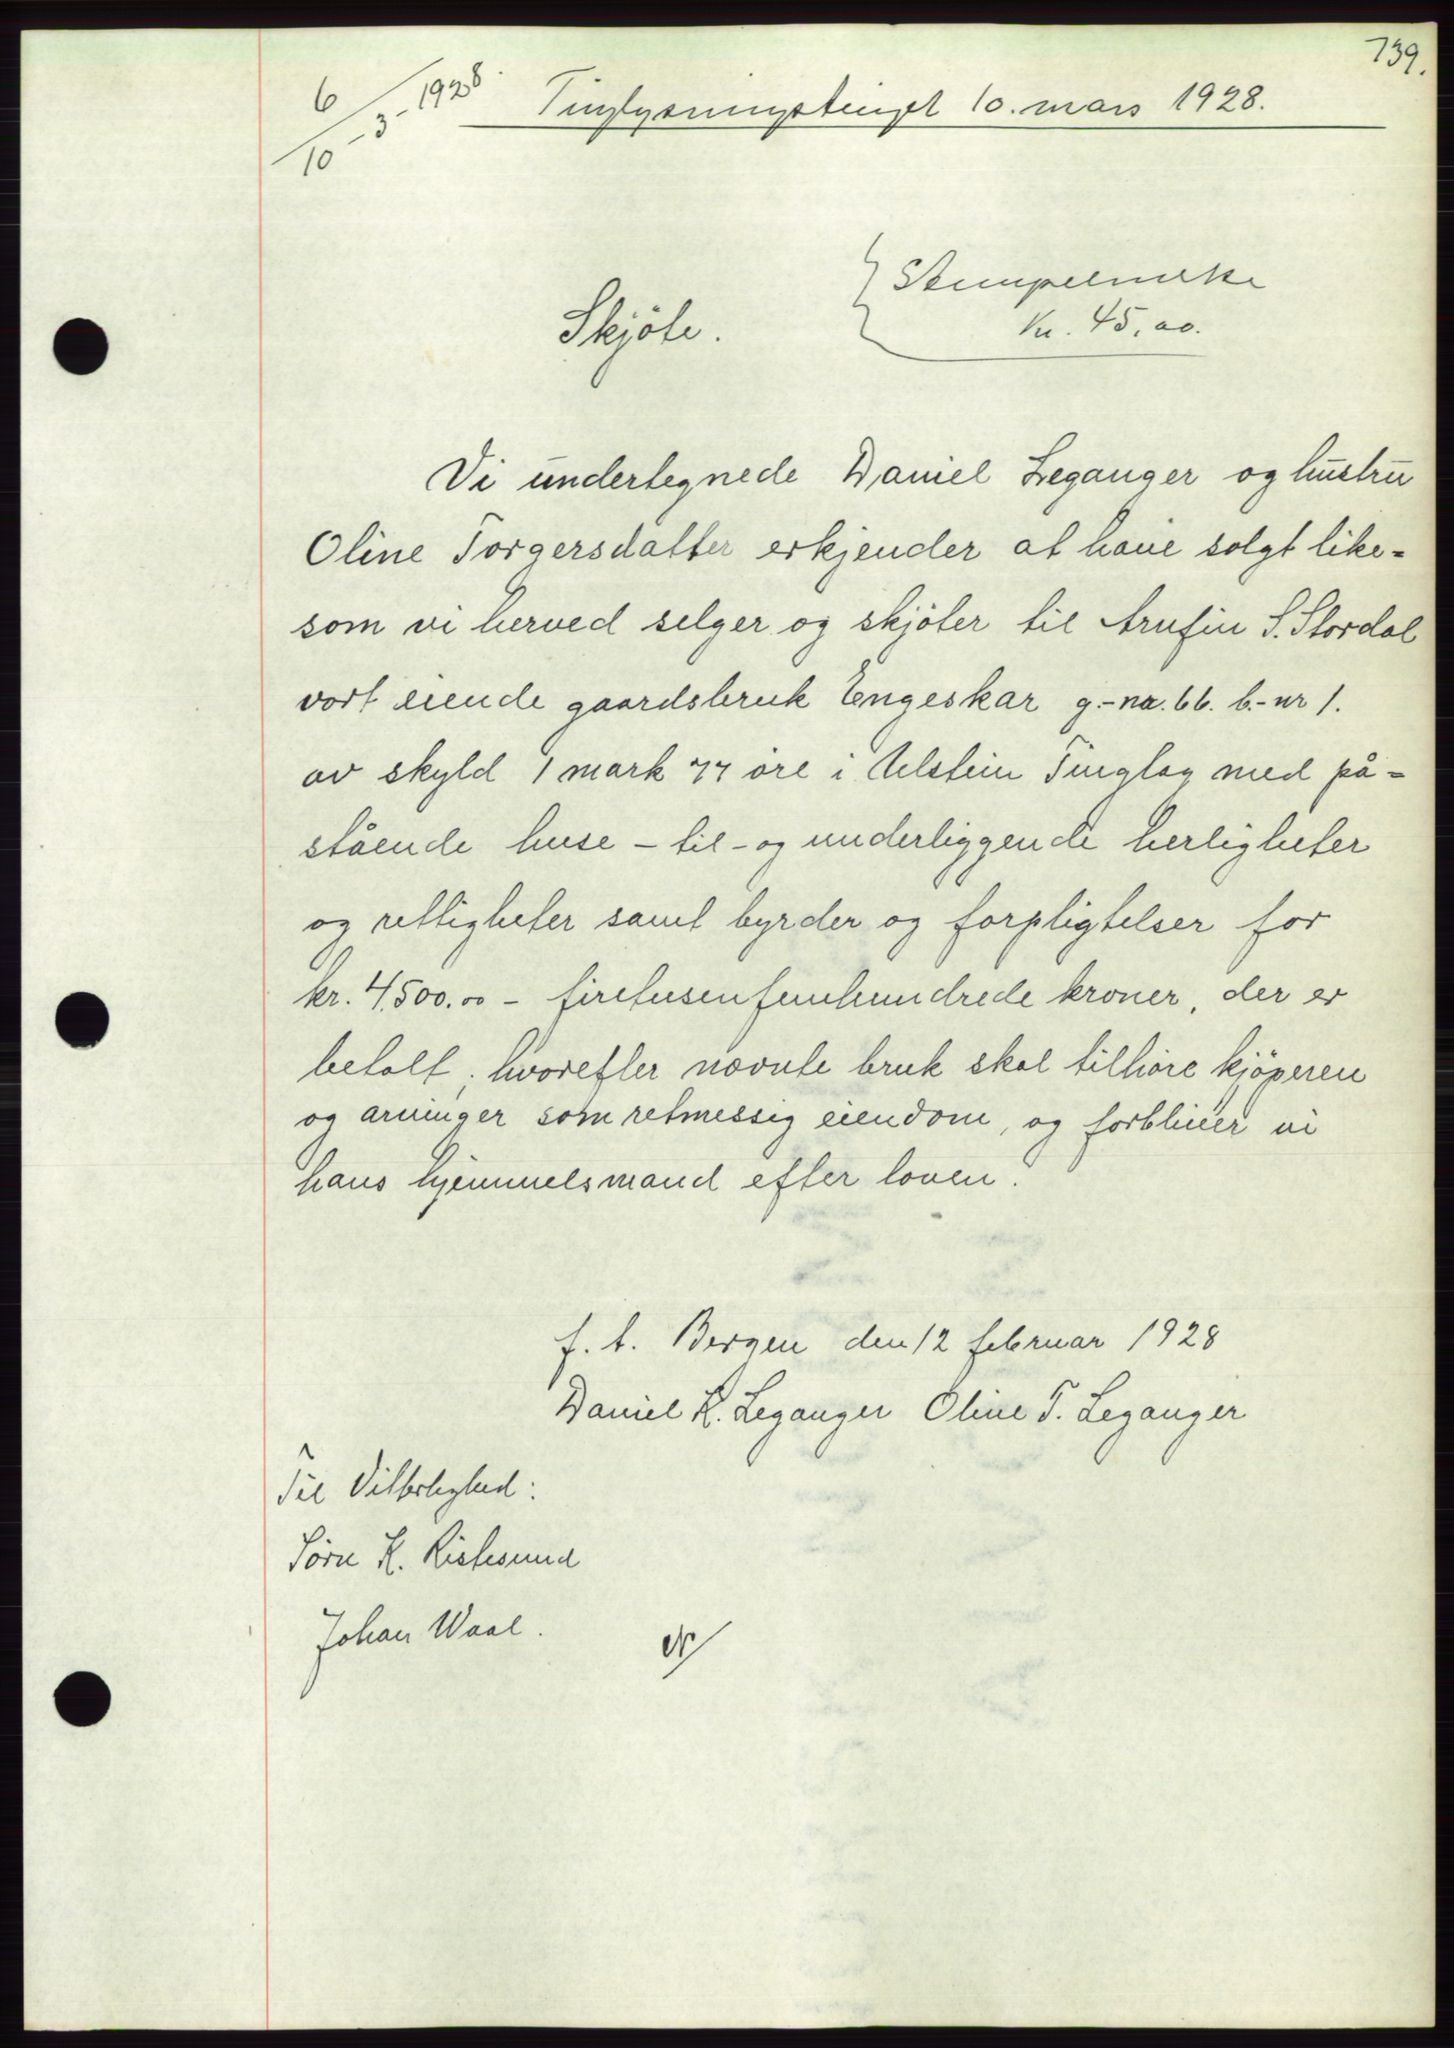 739.
6/10 - 3 - 1928.
Tinglysningstinget 10. mars 1928.
Stempelmerke
kr. 45,00.
Skjöte.
Vi undertegnede Daniel Leganger og hustru
Oline Torgersdatter erkjender at have solgt like-
som vi herved selger og skjöter til Arnfin S. Stordal
vort eiende gaardsbruk Engeskar g.-nr. 66. b.-nr 1.
av skyld 1 mark 77 öre i Ulstein Tinglag med på-
stående huse - til - og underliggende herligheter
og rettigheter samt byrder og forpligtelser for
kr. 4,500.00 - firetusenfemhundrede kroner, der er
betalt; hvorefter nævnte bruk skal tilhöre kjöperen
og arvinger som retmessig eiendom, og forbliver vi
hans hjemmelsmand efter loven.
f. t. Bergen den 12 februar 1928
Daniel K. Leganger Oline T. Leganger
Til Vitterlighed:
Sörn K. Ristesund
Johan Waal.